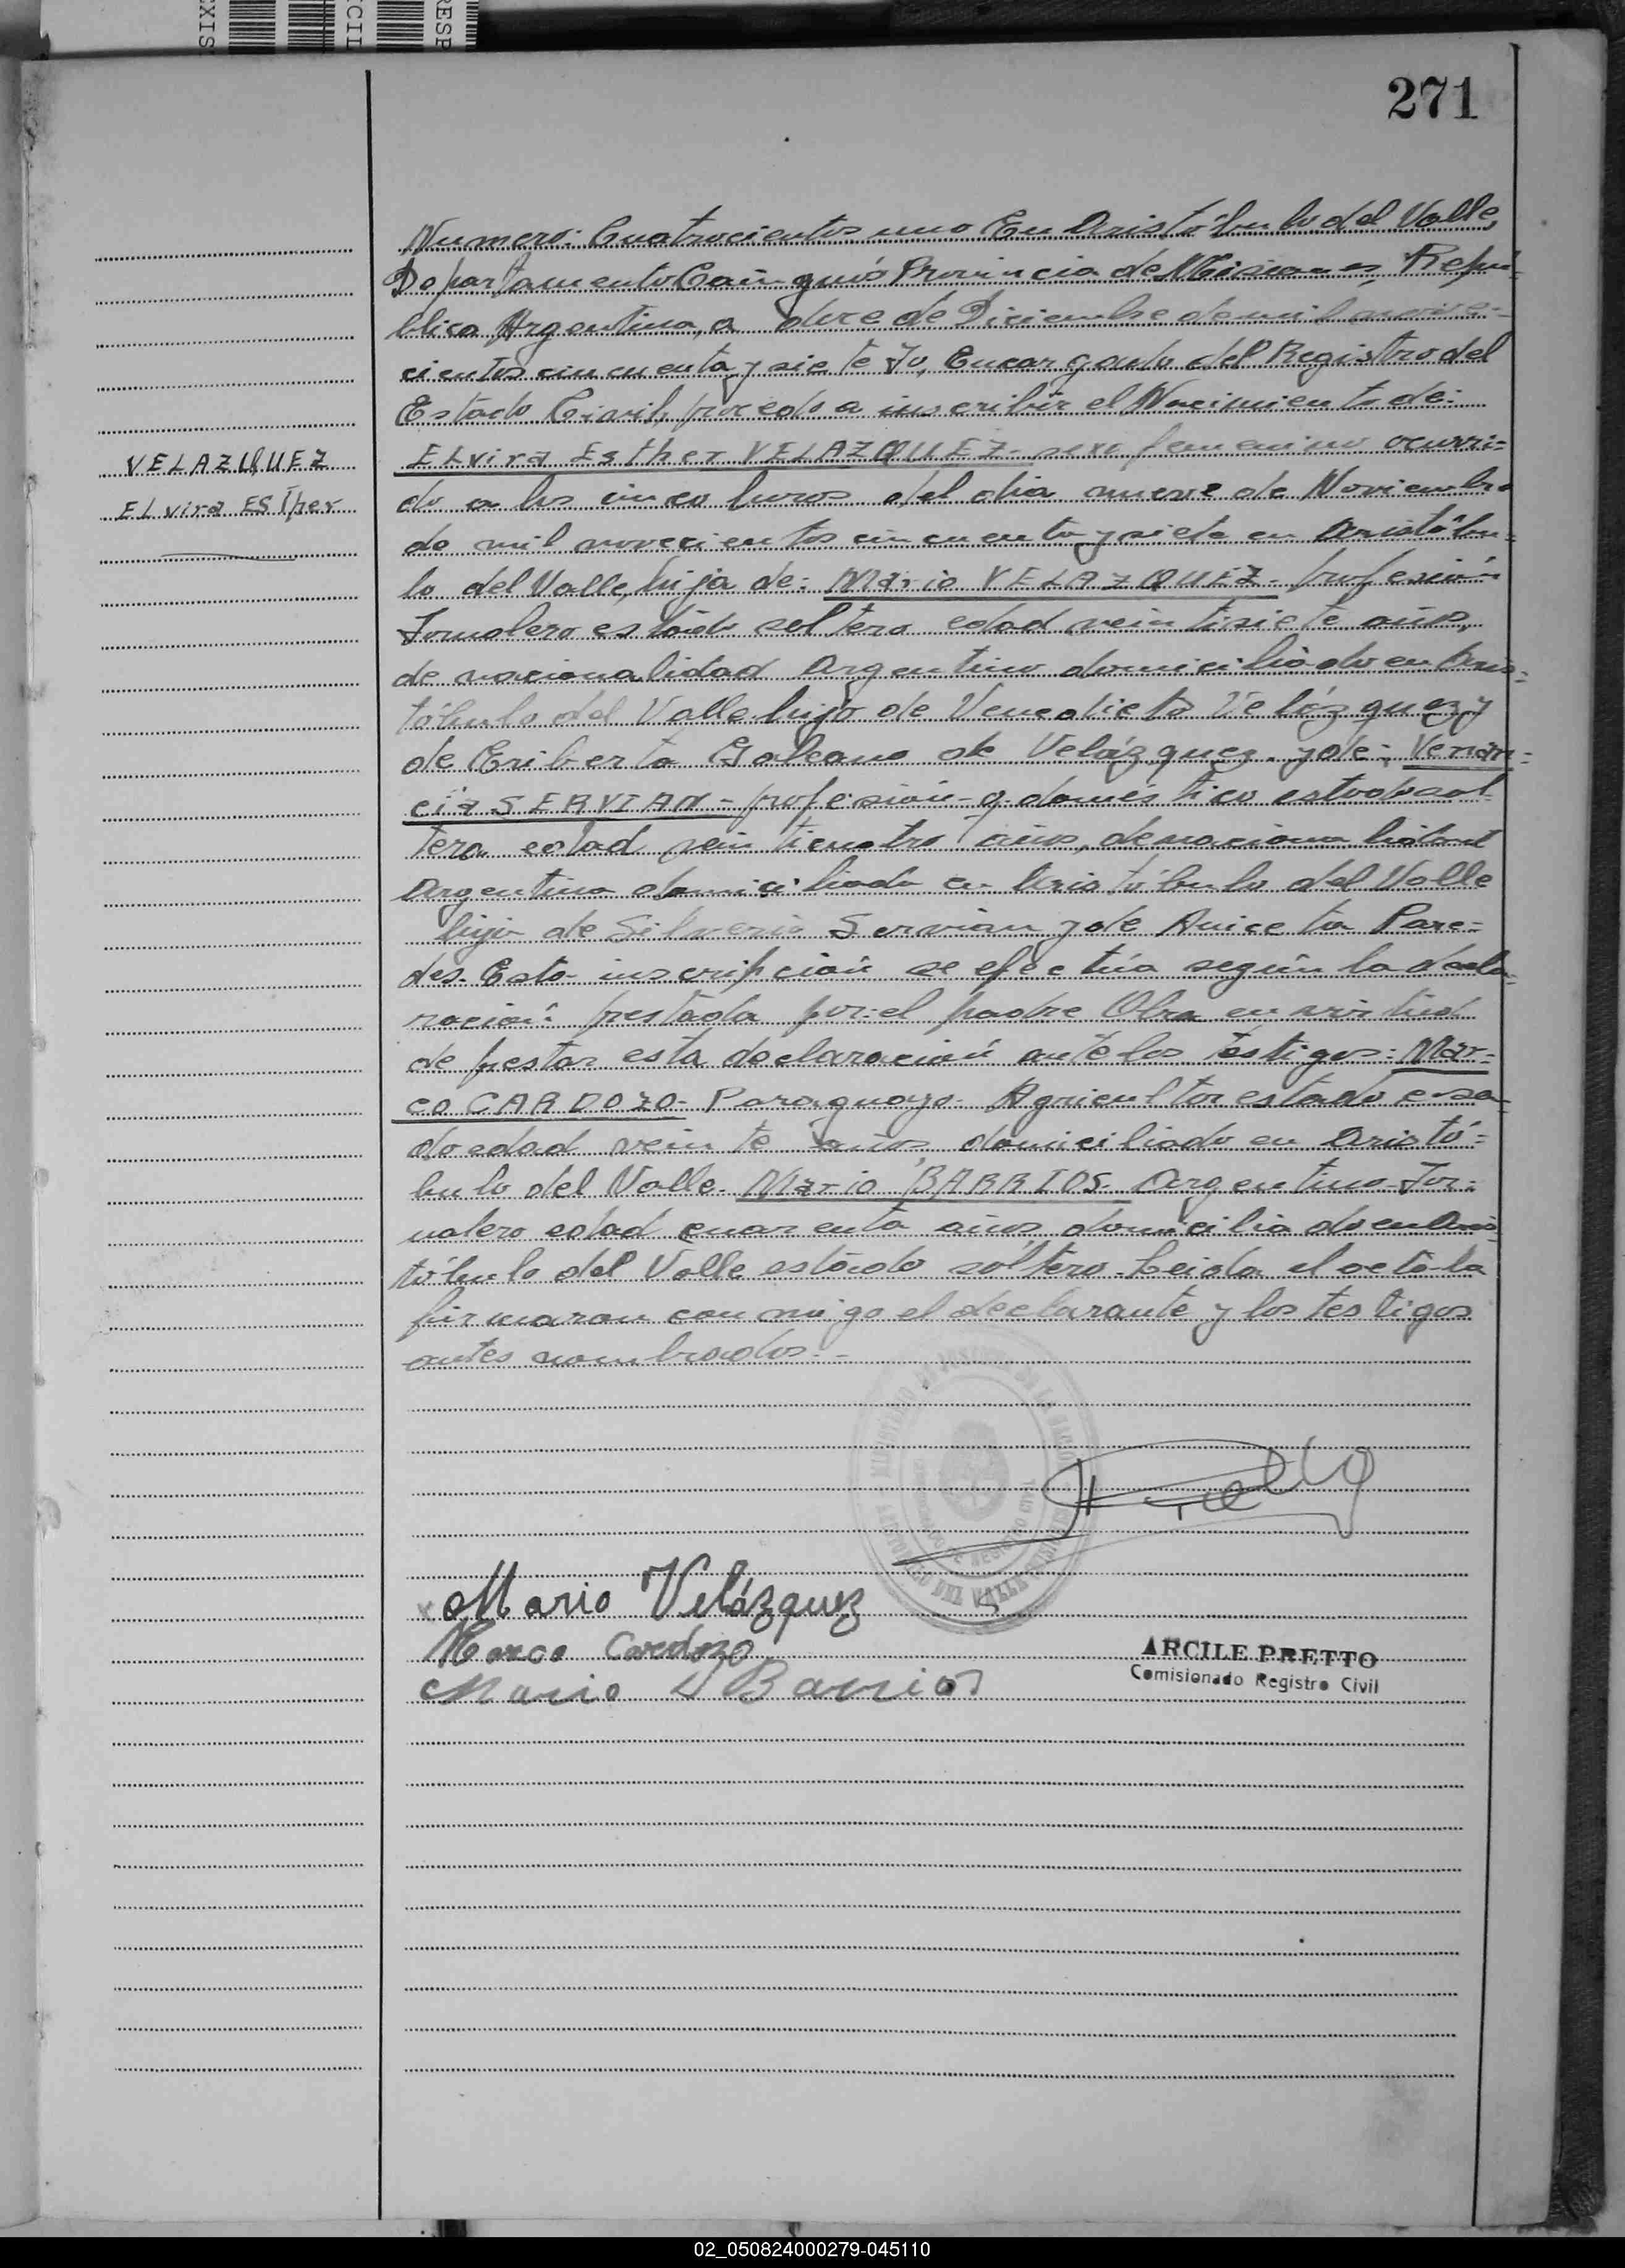 271
Numero: Cuatrocientos uno En Aristóbulo del Valle,
Departamento Cainguás Provincia de Misiones, Repú-
blica Argentina, a doce de Diciembre de mil nove-
cientos cincuenta y siete Yo, Encargado del Registro del
Estado Civil, procedo a inscribir el Nacimiento de:
VELAZQUEZ
ELvira Esther VELAZQUEZ- sexo femenino ocurri-
ELvira ESTher
do a las cinco horas del dia nueve de Noviembre
de mil novecientos cincuenta y siete en Aristóbu-
lo del Valle, hija de: Mario VELAZQUEZ- profesión
Jornalero estado soltero edad veintisiete años,
de nacionalidad Argentino domiciliado en Aris-
tóbulo del Valle hijo de Venedicto Velázquez y
de Eriberta Galeano de Velázquez. y de: Venan-
cia SERVIAN- profesión- q. doméstico estado sol-
tera edad veinticuatro años, de nacionalidad
Argentina domiciliada en Aristóbulo del Valle
hija de Silverio Servian y de Aniceta Pare-
des. Esta inscripción se efectúa según la decla-
ración prestada por: el padre Obra en virtud
de prestar esta declaración ante los testigos: Mar-
co CARDOZO- Paraguayo- Agricultor estado casa-
do edad veinte años, domiciliado en Aristó-
bulo del Valle. Mario BARRIOS- Argentino- Jor-
nalero edad cuarenta años, domiciliado en Aris-
tóbulo del Valle estado soltero. Leida el acta la
firmaron conmigo el declarante y los testigos
antes nombrados.-
Mario Velázquez
Marco Cardozo
Mario Barrios
ARCILE PRETTO
Comisionado Registro Civil
02_050824000279-045110